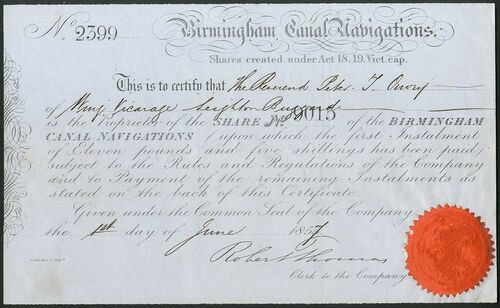 No. 2399
Birmingham Canal Navigations.
Shares created under Act 18.19. Vict. cap.
This is to certify that The Reverend Peter T. Ouvry
of Wing Vicarage Leighton Buzzard
is the Proprietor of the SHARE No. 9015 of the BIRMINGHAM
CANAL NAVIGATIONS upon which the first Instalment
of Eleven pounds and five shillings has been paid,
subject to the Rules and Regulations of the Company
and to Payment of the remaining Instalments as
stated on the back of this Certificate.
Given under the Common Seal of the Company
the 1st day of June 1857
Robert Thomas
Clerk to the Company